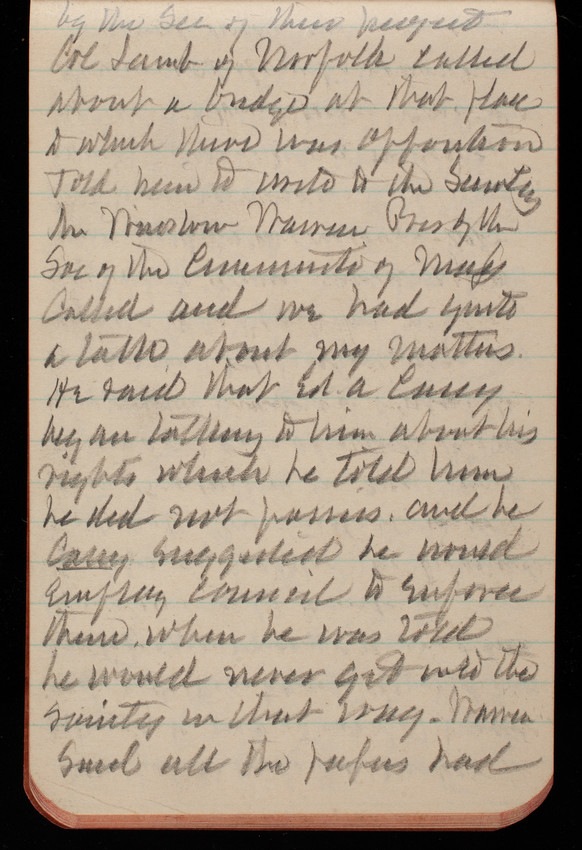 by the Sec of their project
Col Lamb of Norfolk called
about a bridge at that place
to which there was opposition
Told him to write to the Secretary
Mr Winslow Warren Pres of the
Soc of the Cincinnati of Mass
Called and we had quite
a talk about my matters.
He said that Ed. a Casey
began talking to him about his
rights which he told him
he did not possess. and he
Casey suggested he would
employ council to enforce
them. when he was told
he would never get into the
society in that way. Warren
Said all the papers had